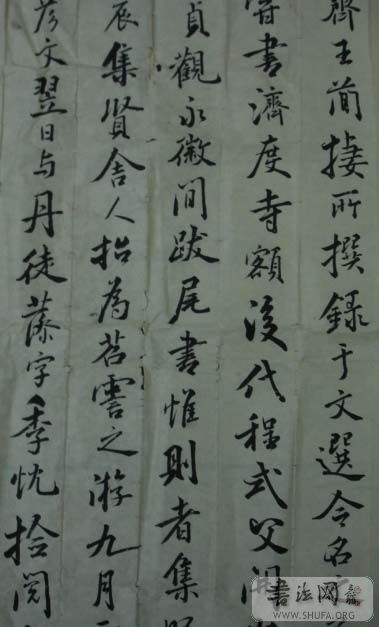 齊王簡棲所撰錄于文選今名
書濟度寺額後代程式父開
貞觀永徽間跋尾書惟則者集
辰集賢舍人招為苕霅之游九月
彦文翌日与丹徒字季忱拾閱
書法网
WWW.SHUFA.ORG